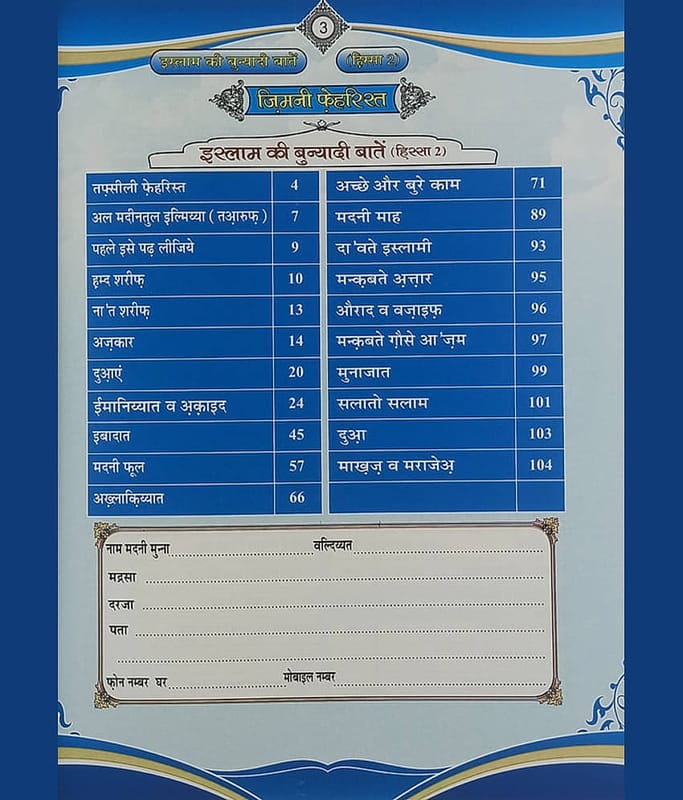 3
इस्लाम की बुन्यादी बातें (हिस्सा 2)
ज़िमनी फ़ेहरिस्त
इस्लाम की बुन्यादी बातें (हिस्सा 2)
तफ्सीली फ़ेहरिस्त 4
अल मदीनतुल इल्मिय्या ( तआ़रुफ़ ) 7
पहले इसे पढ़ लीजिये 9
ह़म्द शरीफ़ 10
ना'त शरीफ़ 13
अज़कार 14
दुआ़एं 20
ईमानिय्यात व अ़क़ाइद 24
इबादात 45
मदनी फूल 57
अख़्लाक़िय्यात 66
अच्छे और बुरे काम 71
मदनी माह 89
दा'वते इस्लामी 93
मन्क़बते अ़त्तार 95
औराद व वज़ाइफ़ 96
मन्क़बते ग़ौसे आ'ज़म 97
मुनाजात 99
सलातो सलाम 101
दुआ़ 103
माख़ज़ व मराजेअ़ 104
नाम मदनी मुन्ना वल्दिय्यत
मद्रसा
दरजा
पता
फ़ोन नम्बर घर मोबाइल नम्बर